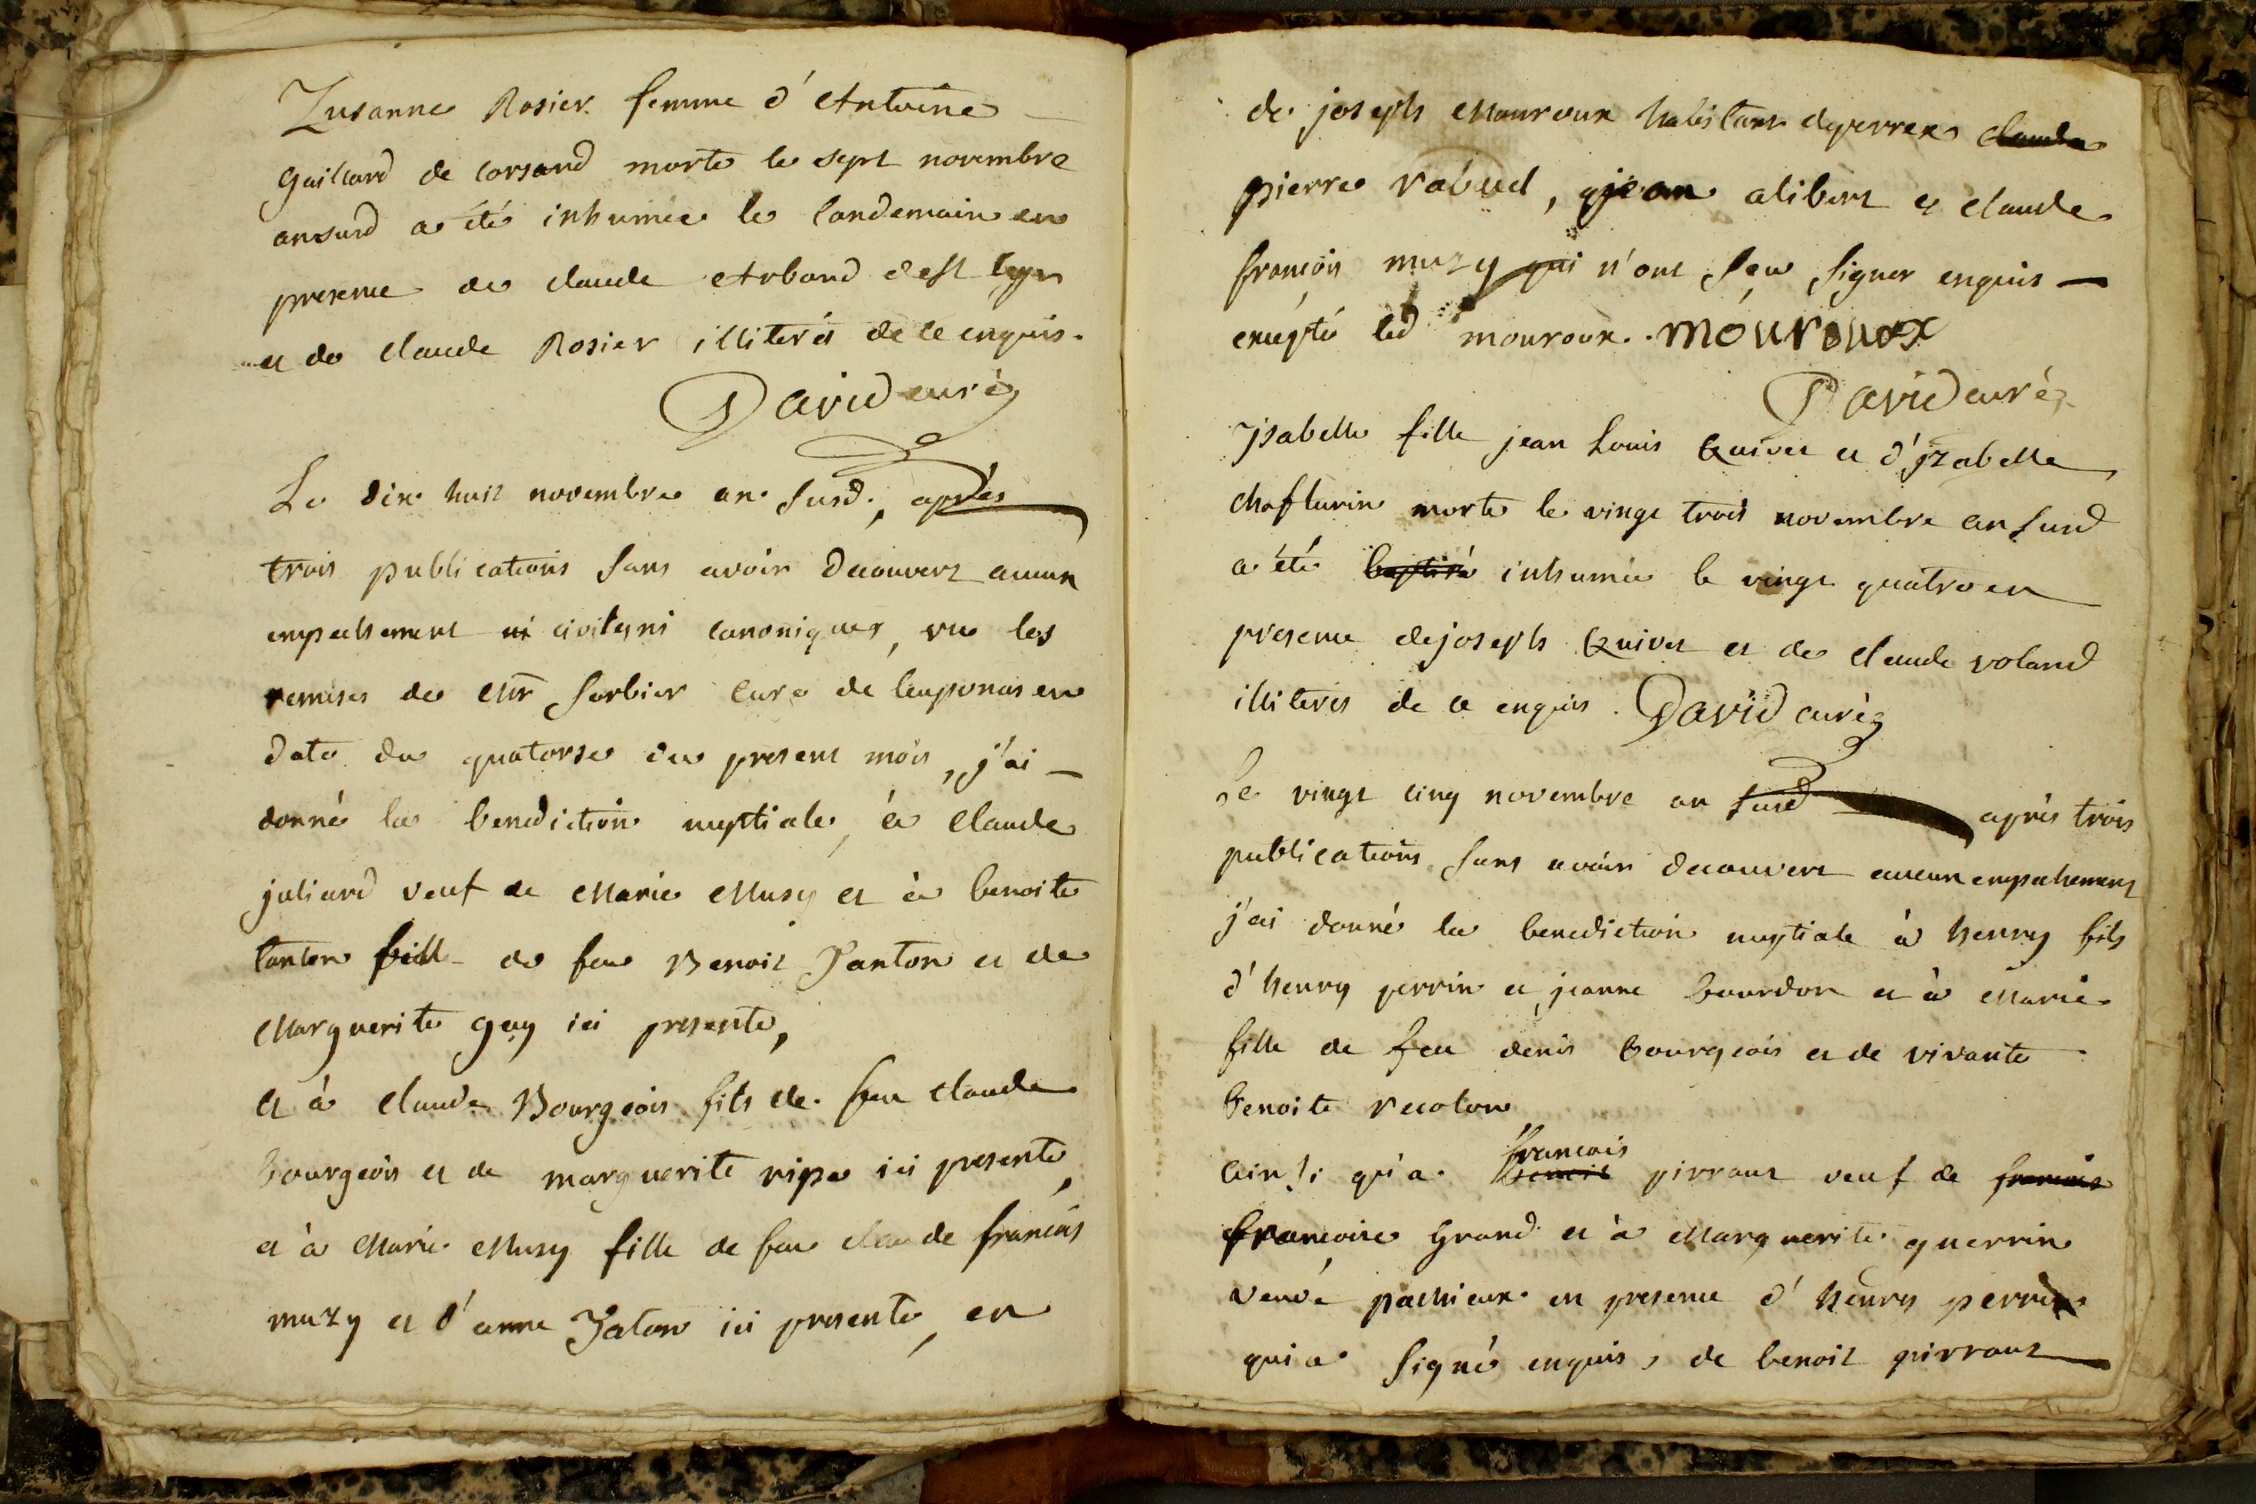 Zusanne Rosier femme d'Antoine
Gaillard de corsand morte le sept novembre
ansusd a été inhumée le landemain en
presence de claude Arband d'est
et de claude Rosier illiterés de ce enquis.
David curé
Le dix huit novembre an susd, après
trois publications sans avoir decouvert aucun
empechement ni civils, ni canoniques, vu les
remises de Mr Sorbier curé de leuponas en
date du quatorse du present mois, j'ai
donné la benediction nuptiale, à claude
juliard veuf de Marie Musy et à benoite
tanton fille de feu Benoit Janton et de
Marguerite guy ici presente,
et à claude Bourgeois fils de feu claude
bourgeois et de marguerite ripe ici presente,
et à Marie Musy fille de feu claude francois
muzy et d'anne Jaton ici presente, en
de joseph Mouroux habitant deperrex claude
pierre rabuel, jean alibert et claude
françois muzy qui n'ont sçu signer enquis
excepté led mouroux. mouroux
David curé
Ysabelle fille jean Louis Quivet et d'jzabelle
chaflurin morte le vingt trois novembre an susd
a été baptisé inhumée le vingt quatre en
presence dejoseph Quivet et de claude voland
illiterés de ce enquis. David curé
Le vingt cinq novembre an susd après trois
publications sans avoir decouvert aucun empechement
j'ai donné la benediction nuptiale à henry fils
d'henry perrin et jeanne bourdon et à Marie
fille de feu denis bourgeois et de vivante
benoite recoton
françois
ainsi qu'a benoit pirraut veuf de francois
francoise Grand et à Marguerite guerrin
veuve pacthieux en presence d'henry perrin
qui a signé enquis, de benoit pirraut